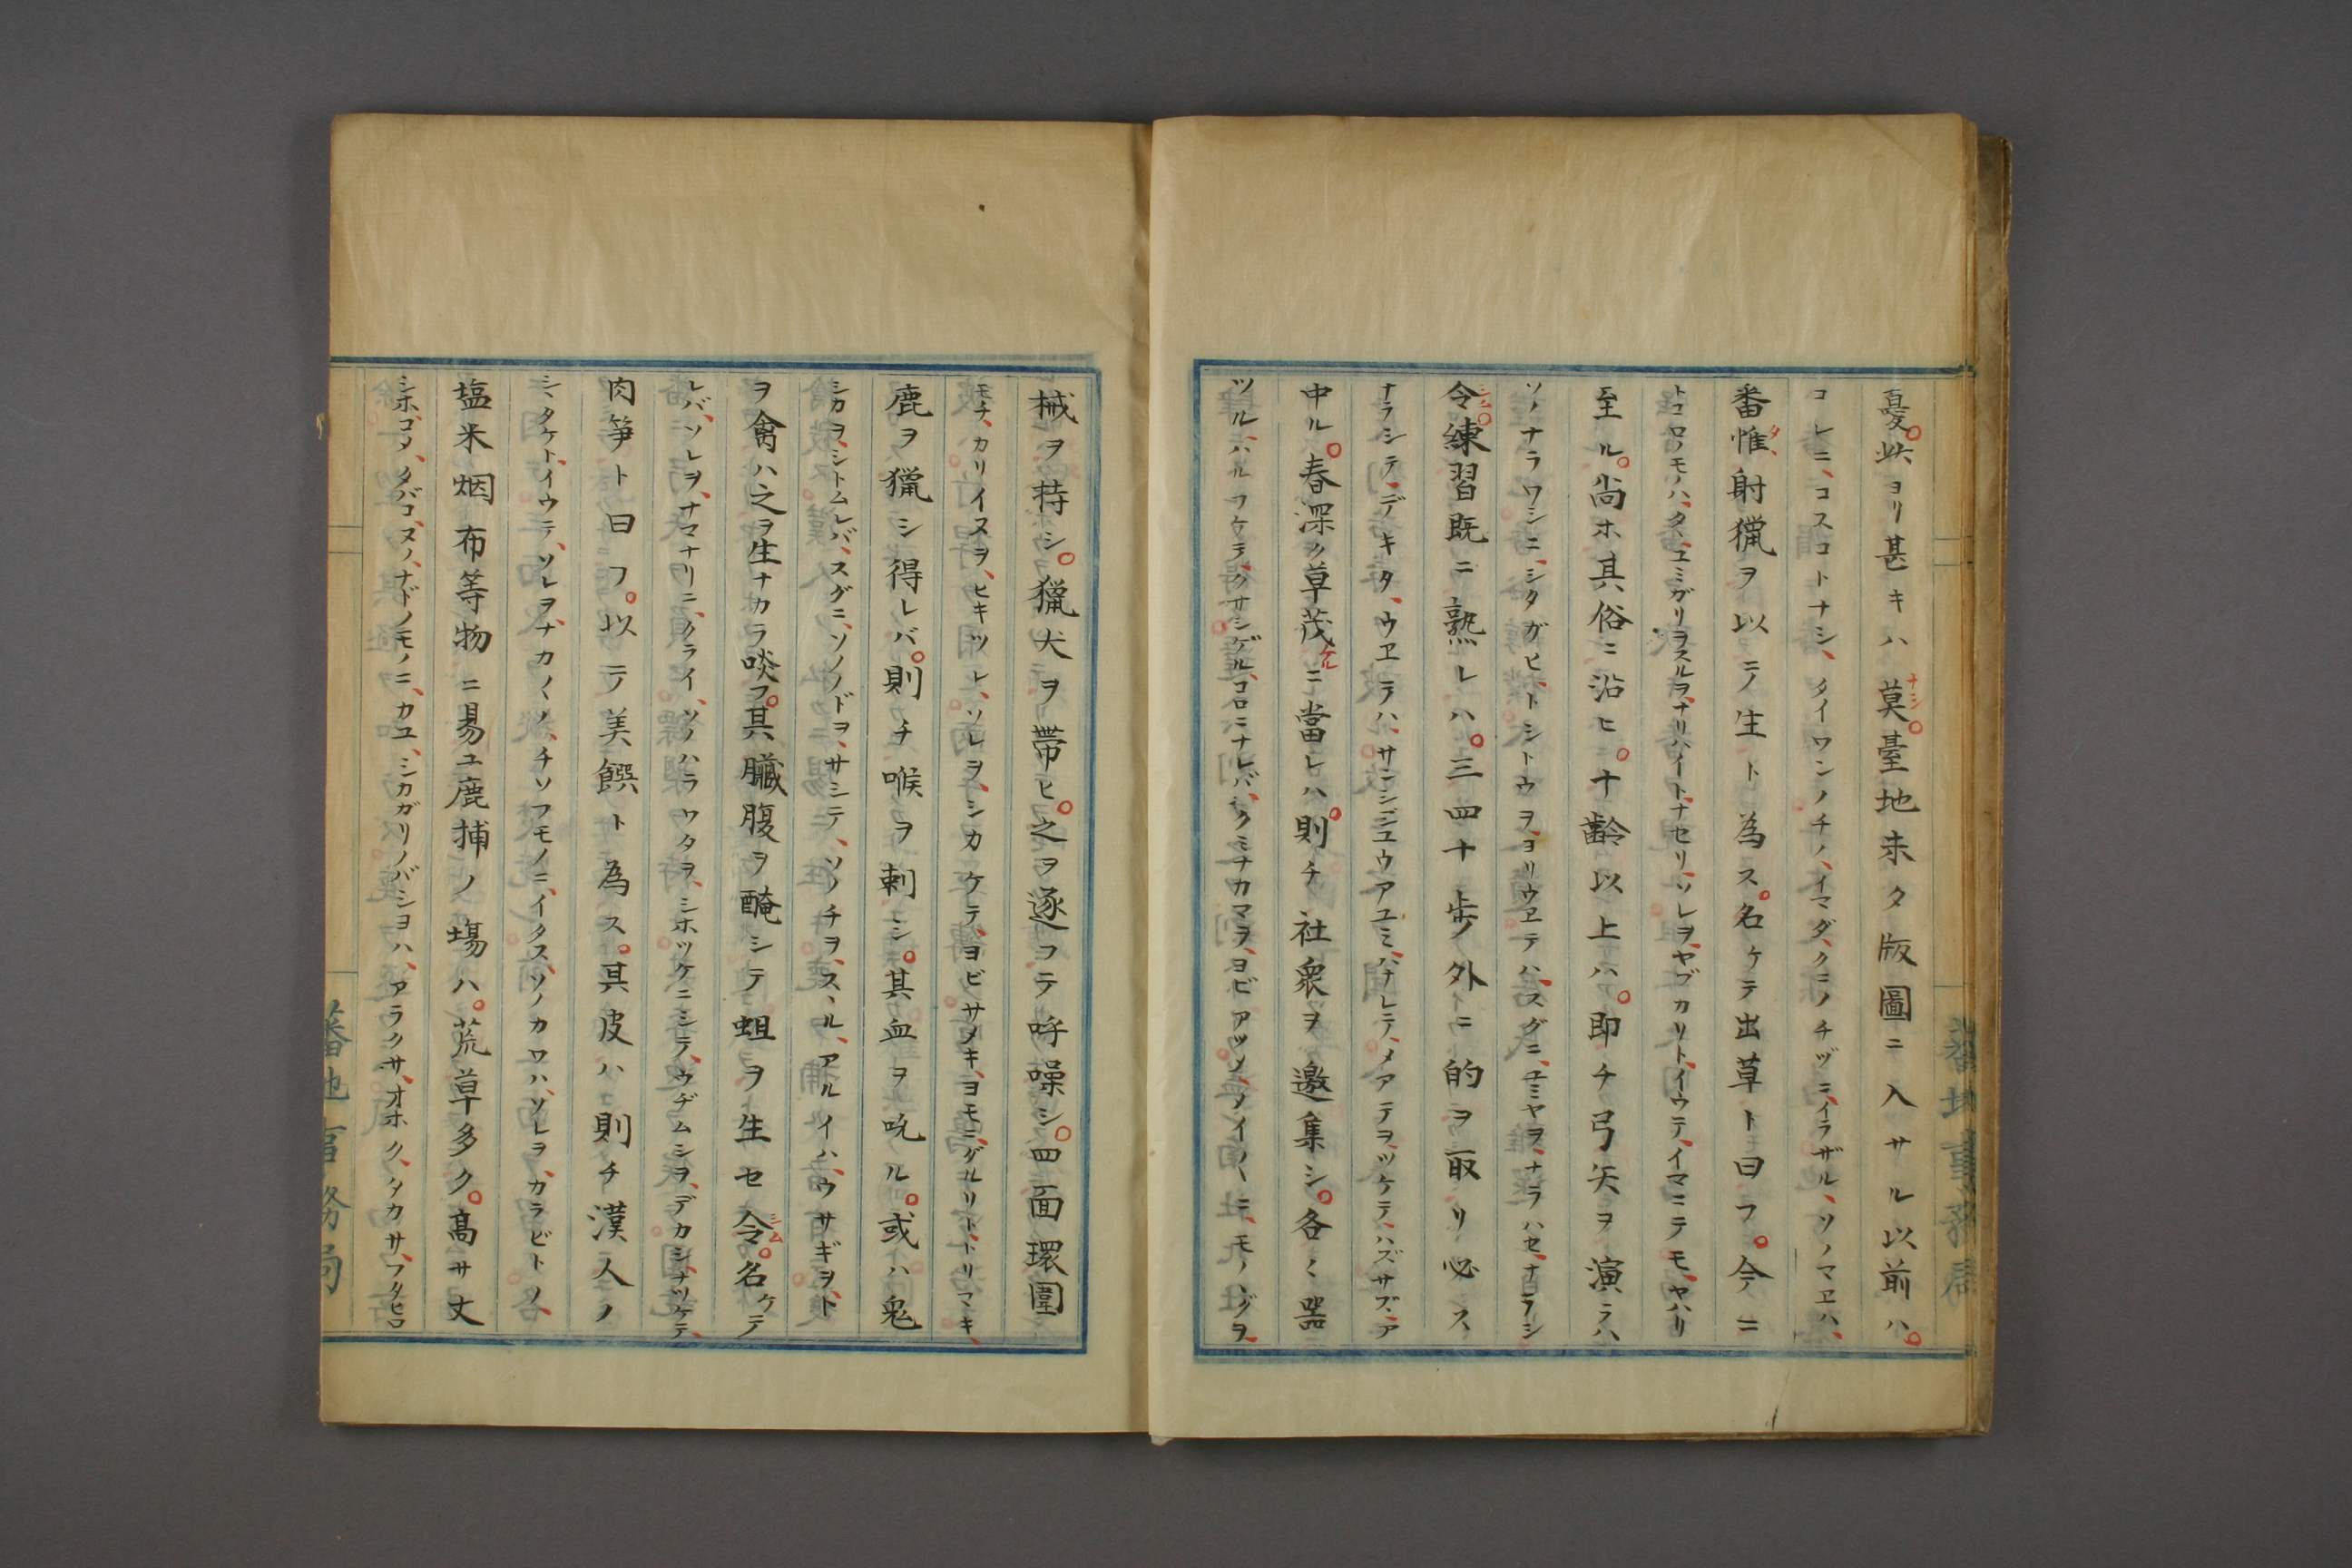 憂。此ヨリ甚キハ莫ナシ。臺地未タ版圖ニ入サル以前ハ。
コレニ、コスコトナシ、タイワンノチノ、イマダ、クニノチヅニ、イラザル、ソノマヱハ、
番惟タヽ射猟ヲ以テノ生ト為ス。名ケテ出草ト曰フ。今ニ
トコロノモノハ、タヾユミガリヲスルヲ、ナリハイト、ナセリ、ソレヲ、ヤブカリト、イウテ、イマニテモ、ヤハリ
至ル。尚ホ其俗ニ沿ヒ。十齢以上ハ。即チ弓矢ヲ演ラハ
ソノナラワシニ、シタガヒ、トシトウヲ、ヨリウヱテハ、スグニ、ユミヤヲ、ナラハセ、ナラシ
令シム。練習既ニ熟レハ。三四十歩ノ外ニ的ヲ取リ必ス
ナラシテ、デキタ、ウヱラハ、サンシジユウアユミ、ハナレテ、メアテヲ、ツケテ、ハズサズ、ア
中ル。春深ク草茂ケルニ當レハ。則チ社衆ヲ邀集シ。各々噐
ツル、ハルフケテ、クサシゲル、コロニナレバ、クミナカマヲ、ヨビアツメ、メイ〳〵ニ、モノハグヲ、
械ヲ持シ。獵犬ヲ帶ヒ。之ヲ逐フテ呼噪シ。四面環圍
モチ、カリイヌヲ、ヒキツレ、ソレヲ、シカケテ、ヨビサメキ、ヨモニ、グルリト、トリマキ、
鹿ヲ獵シ得レバ。則チ喉ヲ刺シ。其血ヲ吮ル。或ハ兎
シカヲ、シトムレバ、スグニ、ソノノドヲ、サシテ、ソノチヲ、スヽル、アルイハ、ウサギヲ、ト
ヲ禽ハ之ヲ生ナカラ啖フ。其臓腹ヲ醃シテ蛆ヲ生セ令シム。名ケテ
レバ、ソレヲ、ナマナリニ、クライ、ソノハラワタヲ、シホツケニシテ、ウヂムシヲ、デカシ、ナツケテ、
肉笋ト曰フ。以テノ美饌ト為ス。其皮ハ則チ漢人ノ
シヽタケト、イウテ、ソレヲ、ナカ〳〵ノ、チソフモノニ、イタス、ソノカワハ、ソレヲ、カラビトノ、
塩米烟布等物ニ易ユ鹿捕ノ塲ハ。荒草多ク。高サ丈
シホ、コメ、タバコ、ヌノ、ナドノモノニ、カユ、シカガリノバシヨハ、アラクサ、オホク、タカサ、フタヒロ
蕃地事務局